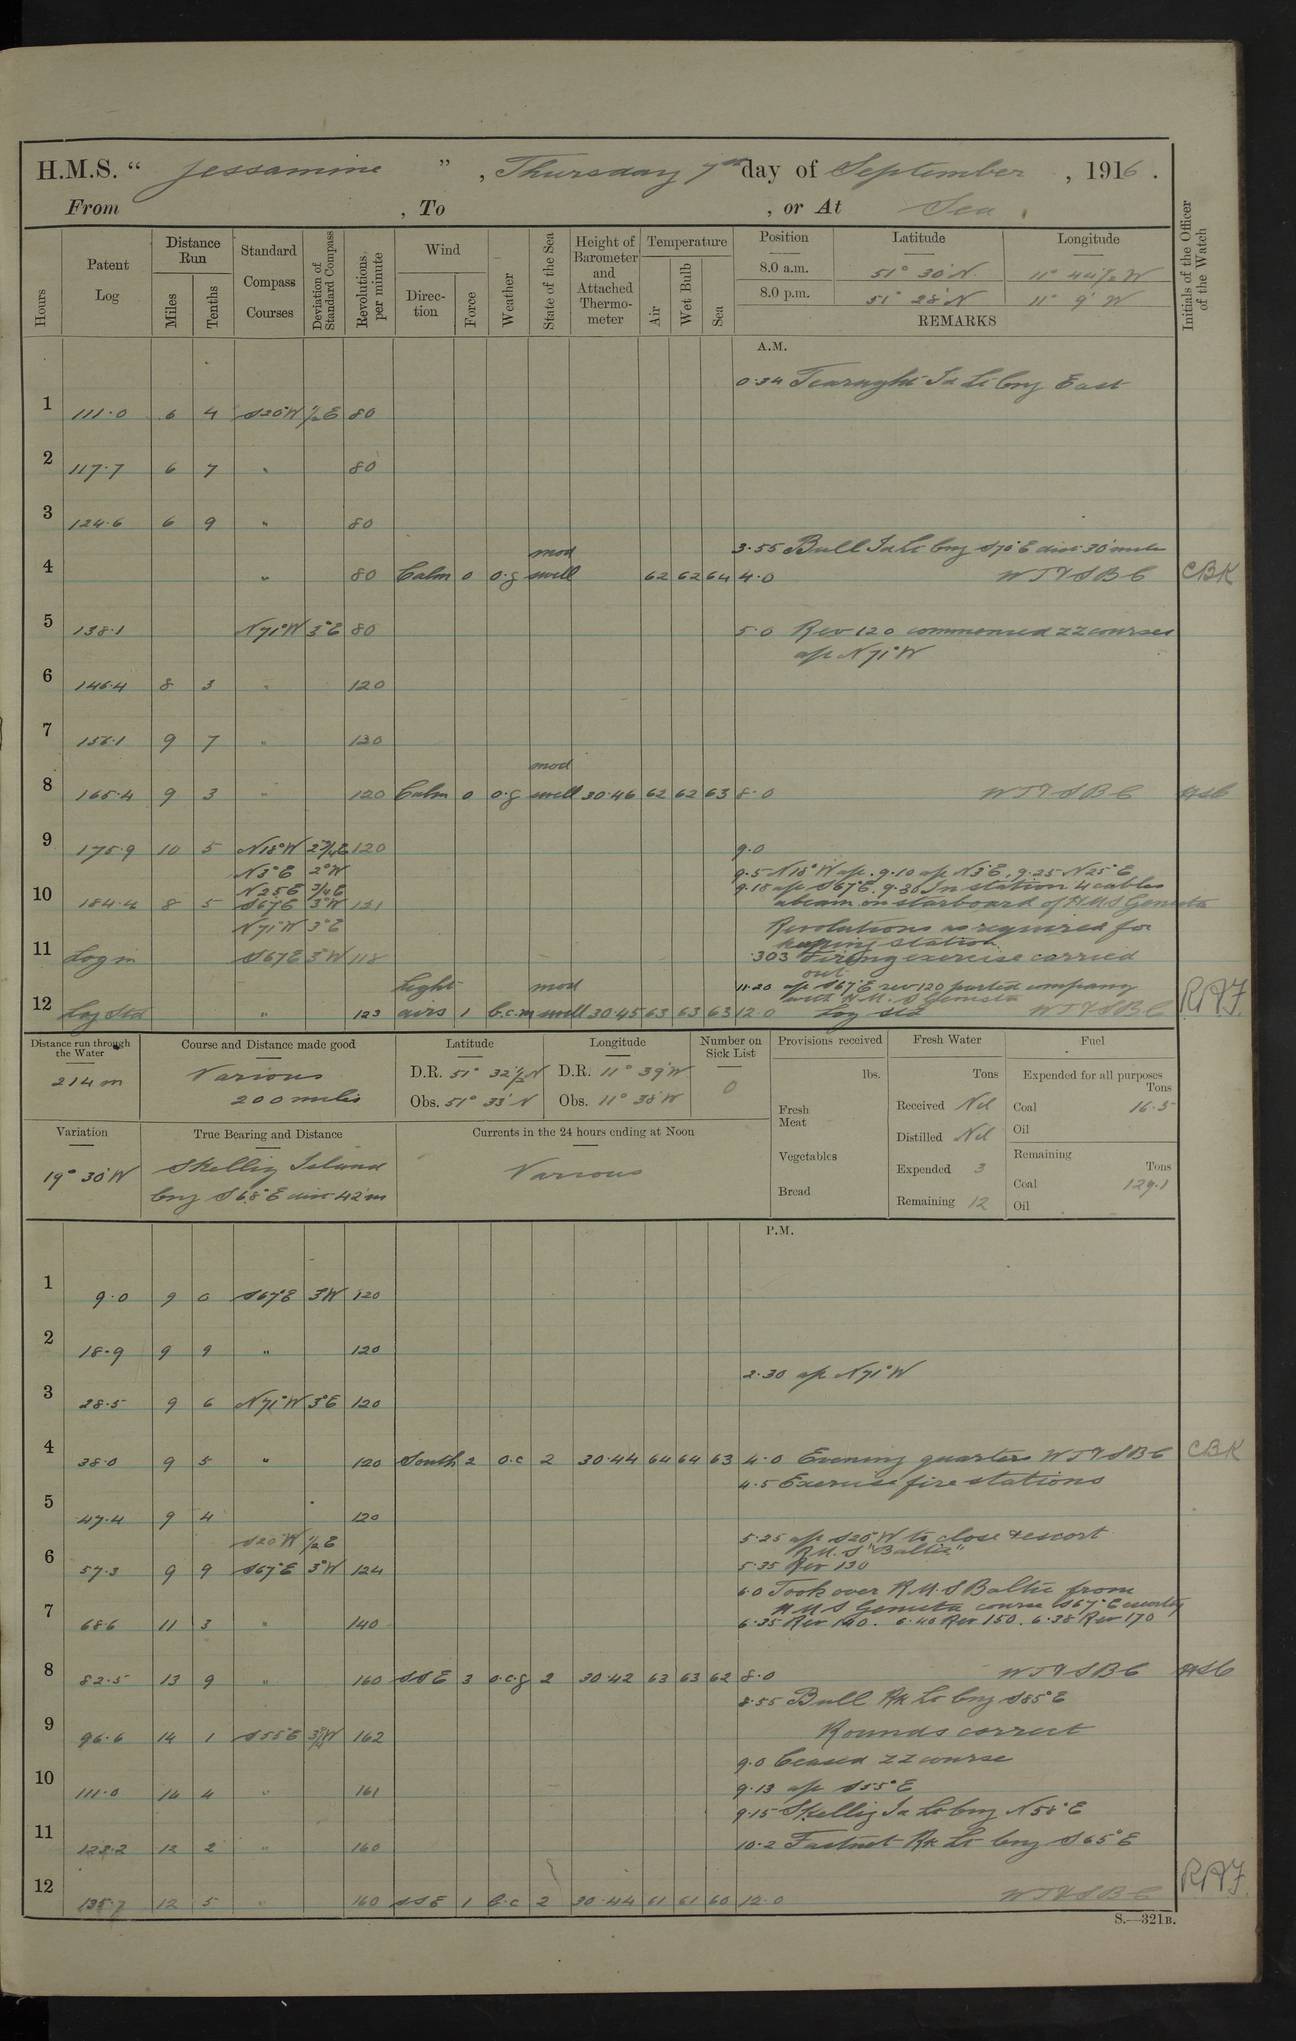 H.M.S. “ Jessamine ” , Thursday 7th day of September , 1916 .
From , To , or At Sea .
Hours
Patent Log
Distance Run
Miles
Tenths
Standard Compass Courses
Deviation of Standard Compass
Revolutions. per minute
Wind
Direction
Force
Weather
State of the Sea
Height of Barometer and Attached Thermometer
Temperature
Air
Wet Bulb
Sea
Position Latitude Longitude
8.0 a.m. 51° 30' N. 11° 44½ W
8.0 p.m. 51° 28' N 11° 9' W
REMARKS
Initials of the Officer of the Watch
A.M.
0.34 Tearaght Id Lt brg East
1 111.0 6 4 S20°W ½E 80
2 117.7 6 7 " 80
3 124.6 6 9 " 80
3.55 Bull Id Lt brg S70°E dist 30 miles
4 " 80 Calm 0 o.g mod swell 62 62 64 4.0 WT&SBC CBK
5 138.1 N71°W 3°E 80 5.0 Rev 120 commenced ZZ courses
a/c N71°W
6 146.4 8 3 " 120
7 156.1 9 7 " 120
8 165.4 9 3 " 120 Calm 0 o.g mod swell 30.46 62 62 63 8.0 WT&SBC
9 175.9 10 5 N18°W 2¾E 120 9.0
N3°E 2°W 9.5 N18°W a/c. 9.10 a/c N3°E. 9.25 N25°E
N25E ¾E 9.18 a/c S67°E. 9.30 In station 4 cables
10 184.4 8 5 S67E 3°W 121 abeam on starboard of HMS Genista
N71°W 3°E Revolutions as required for
keeping station
11 Log in S67E 3°W 118 .303 Firing exercise carried
out
11.20 a/c S67°E rev 120 parted company
with H.M.S Genista
12 Log Std " 123 Light airs 1 b.c.m mod swell 30.45 63 63 63 12.0 Log std WT&SBC
Distance run through the Water
214 m
Course and Distance made good
Various
200 miles
Latitude
D.R. 51° 32½ N
Obs. 51° 33' N
Longitude
D.R. 11° 39' W
Obs. 11° 38' W
Number on Sick List
0
Variation
19° 30' W
True Bearing and Distance
Skellig Island
brg S68°E dist 42 m
Currents in the 24 hours ending at Noon
Various
Provisions received
lbs.
Fresh Meat
Vegetables
Bread
Fresh Water
Tons
Received Nil
Distilled Nil
Expended 3
Remaining 12
Fuel
Expended for all purposes
Tons
Coal 16.5
Oil
Remaining
Tons
Coal 129.1
Oil
P.M.
1 9.0 9 0 S67°E 3W 120
2 18.9 9 9 " 120
2.30 a/c N71°W
3 28.5 9 6 N71°W 3°E 120
4 38.0 9 5 " 120 South 2 o.c 2 30.44 64 64 63 4.0 Evening quarters WT&SBC CBK
4.5 Exercise fire stations
5 47.4 9 4 120
S20°W ½E 5.25 a/c S20°W to close & escort
R.M.S "Baltic"
6 57.3 9 9 S67°E 3°W 124 5.35 Rev 130
6.0 Took over R.M.S Baltic from
H M S Genista course S67°E
7 68.6 11 3 " 140 6.35 Rev 140. 6.40 Rev 150. 6.38 Rev 170
8 82.5 13 9 " 160 SSE 3 o.c.g 2 30.42 63 63 62 8.0 WT&SBC
8.55 Bull Rk Lt brg S85°E
9 96.6 14 1 S55E 162 Rounds correct
9.0 Ceased ZZ course
10 111.0 14 4 " 161 9.13 a/c S55°E
9.15 Skellig Id Lt brg N58°E
11 123.2 12 2 " 160 10.2 Fastnet Rk Lt brg S65°E
12 135.7 12 5 " 160 SSE 1 b.c 2 30.44 61 61 60 12.0 WT&SBC
S.—321B.